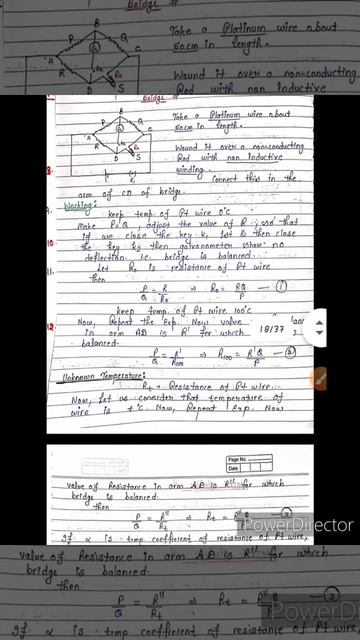 Bridge #
Take a Platinum wire about
50cm in length.
Wound it over a non-conducting
Rod with non inductive
Bridge #
Take a Platinum wire about
50cm in length.
Wound it over a non-conducting
Rod with non inductive
winding.
Connect this in the
arm of CD of bridge.
Working:
keep temp. of Pt wire 0°c.
make P=Q, adjust the value of R so that
if we close the key k1 1st & then close
the key k2 then galvanometer show no
deflection. i.e. bridge is balanced.
Let R0 is resistance of Pt wire
then
P/Q = R/R0 ⇒ R0 = RQ/P — ①
keep temp of Pt wire 100°c
Now, Repeat the Exp. Now value
in arm AD is R' for which
balanced.
18/37
P/Q = R'/R100 ⇒ R100 = R'Q/P — ②
Unknown Temperature:
Rt → Resistance of Pt wire.
Now, Let us consider that temperature of
wire is t°c. Now, Repeat Exp. Now
Page No.
Date
value of Resistance in arm AD is R'' for which
bridge is balanced.
then
P/Q = R''/Rt ⇒ Rt = R''Q — ③
PowerDirector
If α is temp coefficient of resistance of Pt wire,
value of Resistance in arm AD is R'' for which
bridge is balanced.
then
P/Q = R''/Rt ⇒ Rt = R'' — ③
PowerD
If α is temp coefficient of resistance of Pt wire